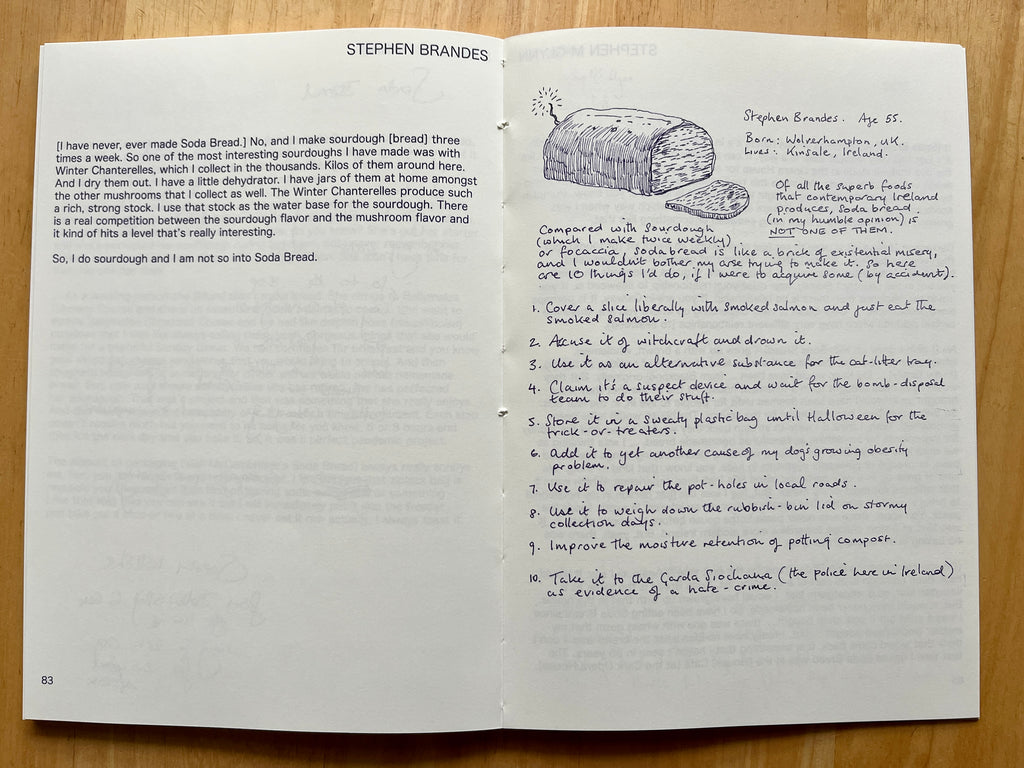 STEPHEN BRANDES
[I have never, ever made Soda Bread.] No, and I make sourdough [bread] three
times a week. So one of the most interesting sourdoughs I have made was with
Winter Chanterelles, which I collect in the thousands. Kilos of them around here.
And I dry them out. I have a little dehydrator. I have jars of them at home amongst
the other mushrooms that I collect as well. The Winter Chanterelles produce such
a rich, strong stock. I use that stock as the water base for the sourdough. There
is a real competition between the sourdough flavor and the mushroom flavor and
it kind of hits a level that's really interesting.
So, I do sourdough and I am not so into Soda Bread.
83
Stephen Brandes. Age 55.
Born: Wolverhampton, UK.
Lives: Kinsale, Ireland.
Of all the superb foods
that contemporary Ireland
produces, soda bread
(in my humble opinion) is
NOT ONE OF THEM.
Compared with sourdough
(which I make twice weekly)
or focaccia, soda bread is like a brick of existential misery,
and I wouldn't bother my arse trying to make it. So here
are 10 things I'd do, if I were to acquire some (by accident).
1. Cover a slice liberally with smoked salmon and just eat the
smoked salmon.
2. Accuse it of witchcraft and drown it.
3. Use it as an alternative substance for the cat-litter tray.
4. Claim it's a suspect device and wait for the bomb-disposal
team to do their stuff.
5. Store it in a sweaty plastic bag until Halloween for the
trick-or-treaters.
6. Add it to yet another cause of my dog's growing obesity
problem.
7. Use it to repair the pot-holes in local roads.
8. Use it to weigh down the rubbish-bin lid on stormy
collection days.
9. Improve the moisture retention of potting compost.
10. Take it to the Garda Siochana (the police here in Ireland)
as evidence of a hate-crime.